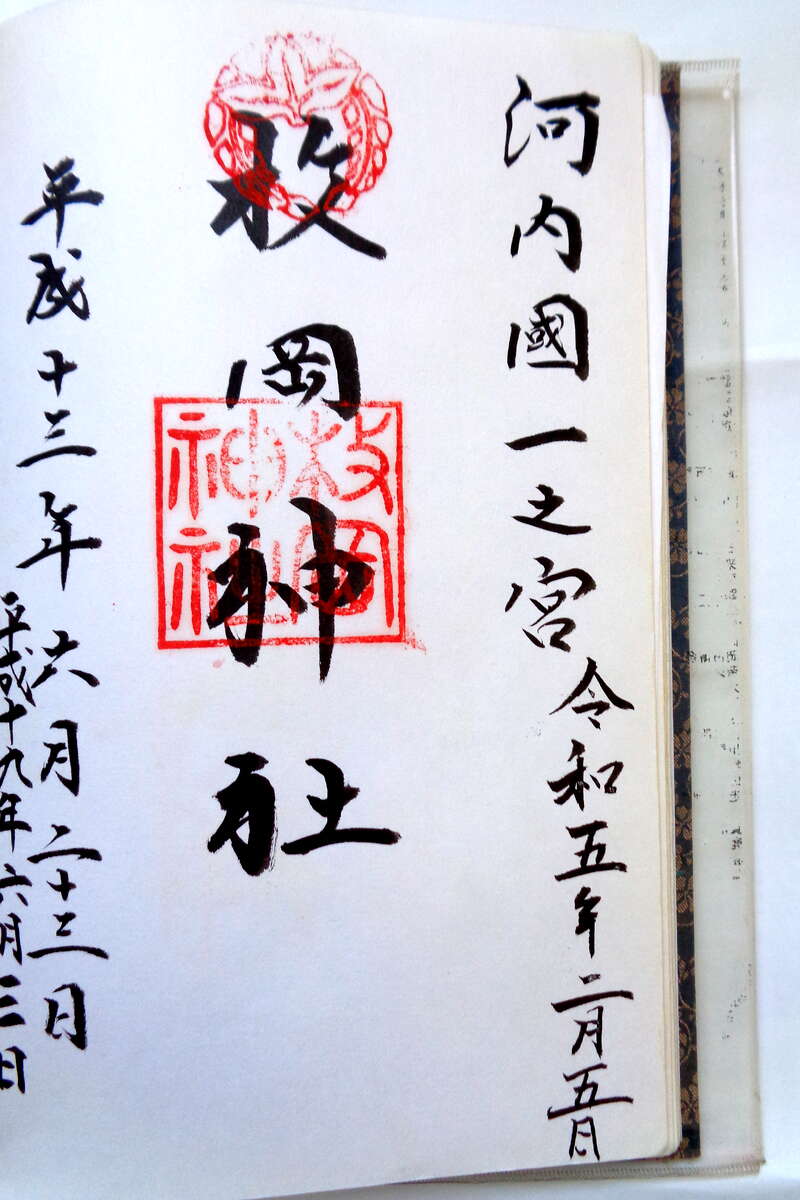 河内國一之宮
令和五年二月五日
枚岡神社
枚岡
神社
平成十三年六月二十三日
平成十九年六月三日